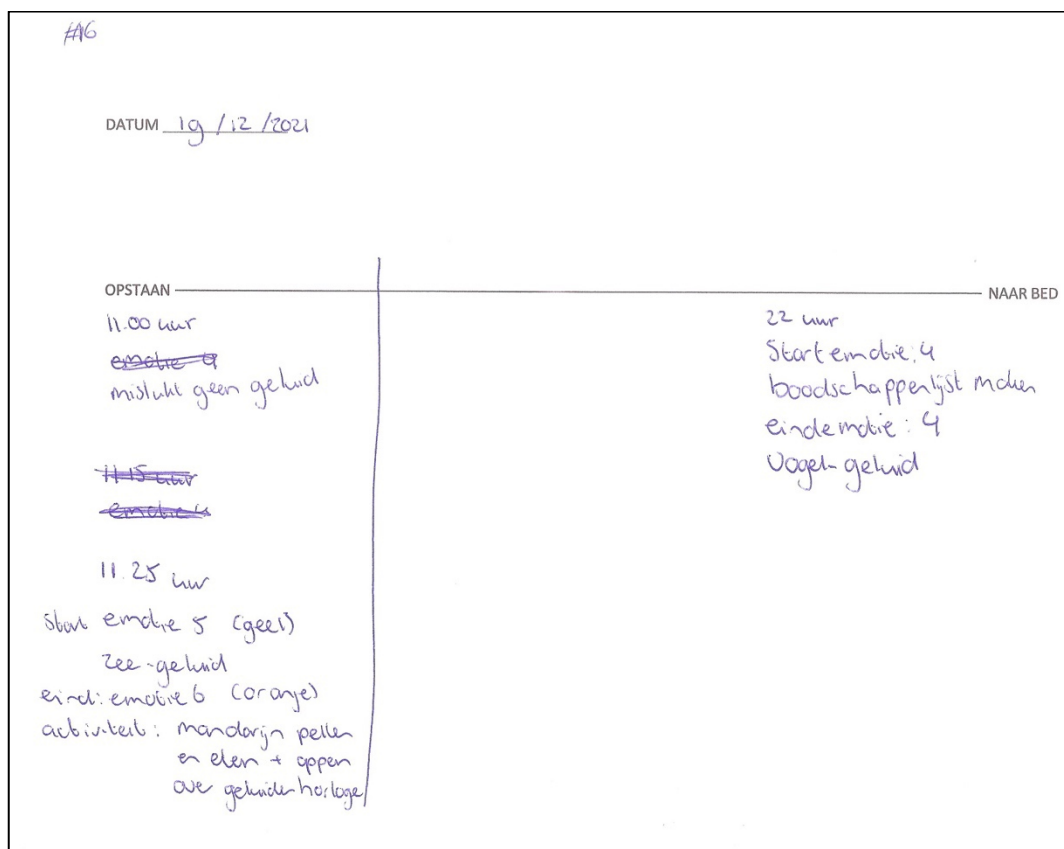 #16
DATUM 19/12/2021
OPSTAAN
NAAR BED
11.00 uur
emotie 4
mislukt geen geluid
11.15 uur
emotie 4
11.25 uur
start emotie 5 (geel)
zee-geluid
eind: emotie 6 (oranje)
activiteit: mandarijn pellen
en eten + appen
over geluidenhorloge
22 uur
Start emotie: 4
boodschappenlijst maken
eindemotie: 4
Vogel-geluid